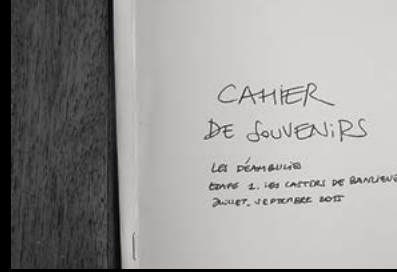 CAHIER
DE SOUVENIRS
LES DÉAMBULIES
ETAPE 1. LES CASTORS DE BANLIEUE
JUILLET, SEPTEMBRE 2015